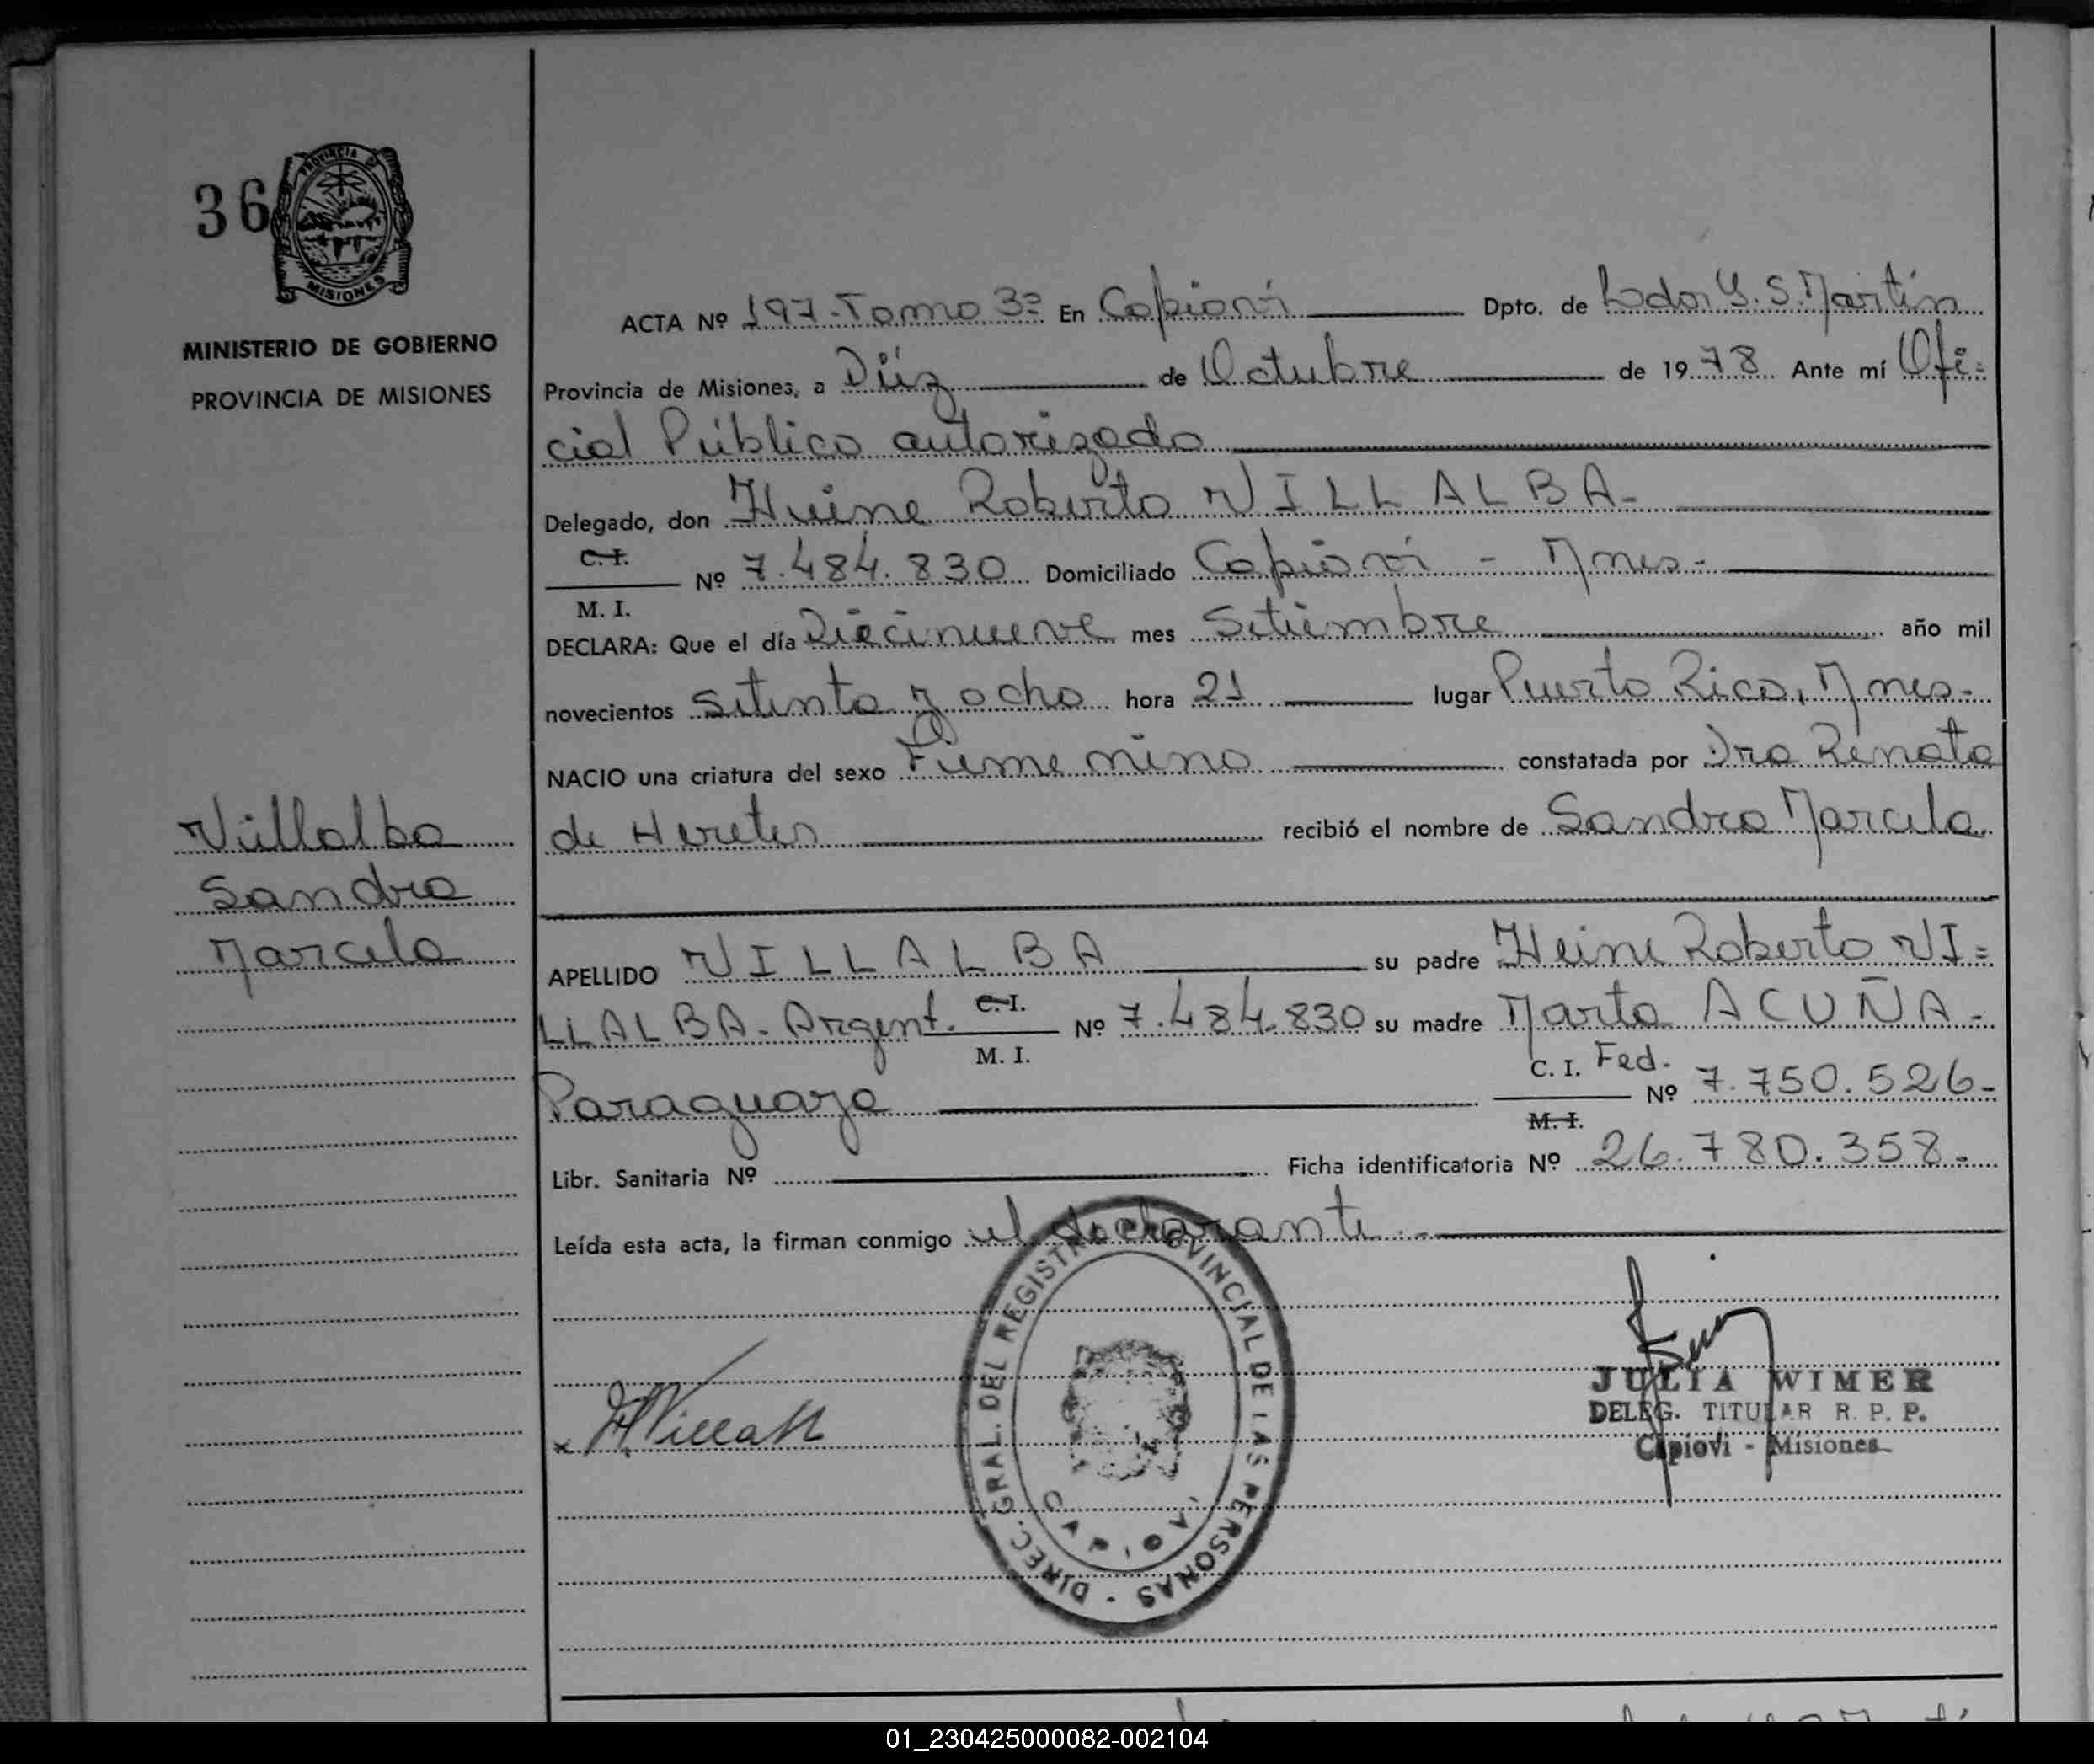 36
PROVINCIA DE
MISIONES
MINISTERIO DE GOBIERNO
PROVINCIA DE MISIONES
Villalba
Sandra
Marcela
ACTA Nº 197-Tomo 3º En Capioví Dpto. de Ldor G. S. Martín
Provincia de Misiones, a Diez de Octubre de 1978 Ante mí Ofi=
cial Público autorizado
Delegado, don Heine Roberto VILLALBA-
C.I.
Nº 7.484.830 Domiciliado Capioví - Mnes-
M. I.
DECLARA: Que el día Diecinueve mes Setiembre año mil
novecientos setenta y ocho hora 21 lugar Puerto Rico, Mnes-
NACIO una criatura del sexo Femenino constatada por Dra Renata
de Hereter recibió el nombre de Sandra Marcela
APELLIDO VILLALBA su padre Heine Roberto VI=
LLALBA-Argent. C.I. Nº 7.484.830 su madre Marta ACUÑA-
M. I.
Paraguaya C. I. Fed. Nº 7.750.526-
M.I.
Libr. Sanitaria Nº Ficha identificatoria Nº 26.780.358-
Leída esta acta, la firman conmigo el declarante.-
DIREC. GRAL. DEL REGISTRO PROVINCIAL DE LAS PERSONAS
CAPIOVÍ
x
JULIA WIMER
DELEG. TITULAR R. P. P.
Capioví - Misiones
01_230425000082-002104